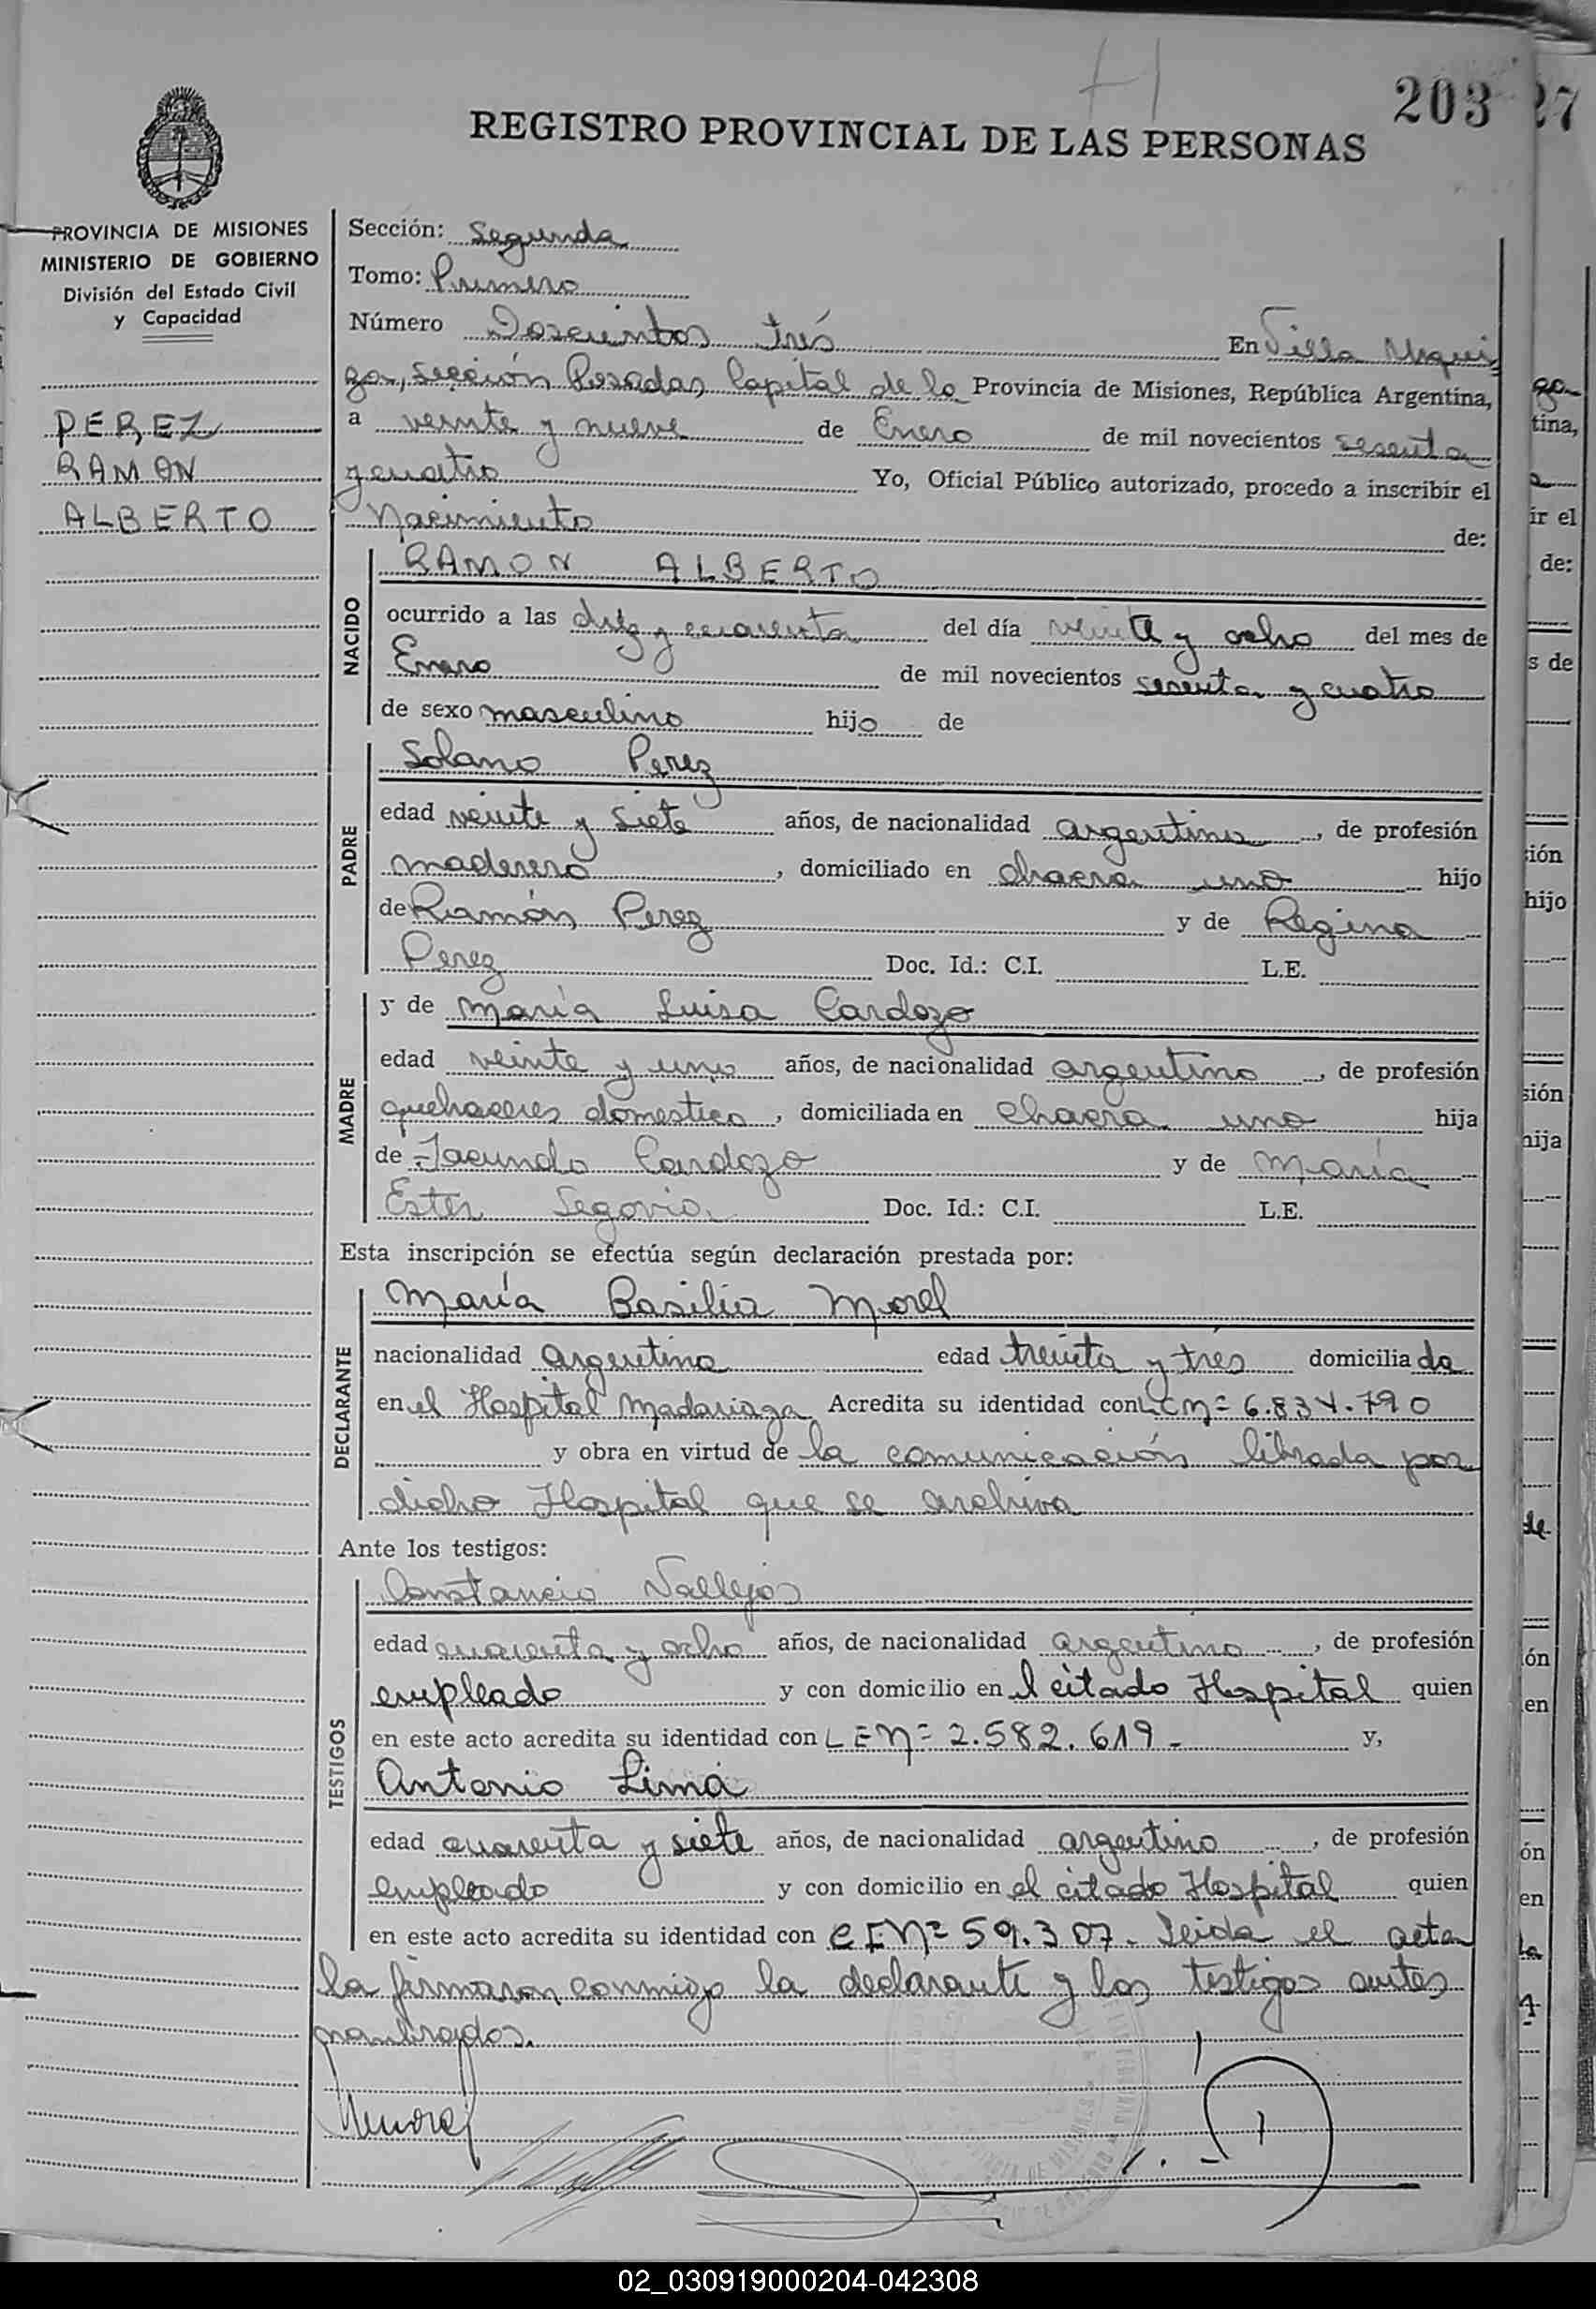 203
27
REGISTRO PROVINCIAL DE LAS PERSONAS
PROVINCIA DE MISIONES
MINISTERIO DE GOBIERNO
División del Estado Civil
y Capacidad
PEREZ
RAMON
ALBERTO
Sección: Segunda
Tomo: Primero
Número Doscientos tres En Villa Urqui
za, Sección Posadas, Capital de la Provincia de Misiones, República Argentina,
a veinte y nueve de Enero de mil novecientos sesenta
y cuatro Yo, Oficial Público autorizado, procedo a inscribir el
Nacimiento de:
NACIDO
RAMON ALBERTO
ocurrido a las diez y cuarenta del día veinte y ocho del mes de
Enero de mil novecientos sesenta y cuatro
de sexo masculino hijo de
PADRE
Solano Perez
edad veinte y siete años, de nacionalidad argentino, de profesión
maderero, domiciliado en chacra uno hijo
de Ramón Perez y de Regina
Perez Doc. Id.: C.I. L.E.
MADRE
y de María Luisa Cardozo
edad veinte y uno años, de nacionalidad argentina, de profesión
quehaceres domestico, domiciliada en chacra uno hija
de Facundo Cardozo y de María
Ester Segovia Doc. Id.: C.I. L.E.
Esta inscripción se efectúa según declaración prestada por:
DECLARANTE
María Basilia Morel
nacionalidad argentina edad treinta y tres domiciliada
en el Hospital Madariaga Acredita su identidad con LC Nº 6.834.790
y obra en virtud de la comunicación librada por
dicho Hospital que se archiva
Ante los testigos:
TESTIGOS
Constancio Vallejos
edad cuarenta y ocho años, de nacionalidad argentino, de profesión
empleado y con domicilio en el citado Hospital quien
en este acto acredita su identidad con LE Nº 2.582.619- y,
Antonio Lima
edad cuarenta y siete años, de nacionalidad argentino, de profesión
empleado y con domicilio en el citado Hospital quien
en este acto acredita su identidad con CI Nº 59.307. Leida el acta
la firmaron conmigo la declarante y los testigos antes
nombrados.
02_030919000204-042308